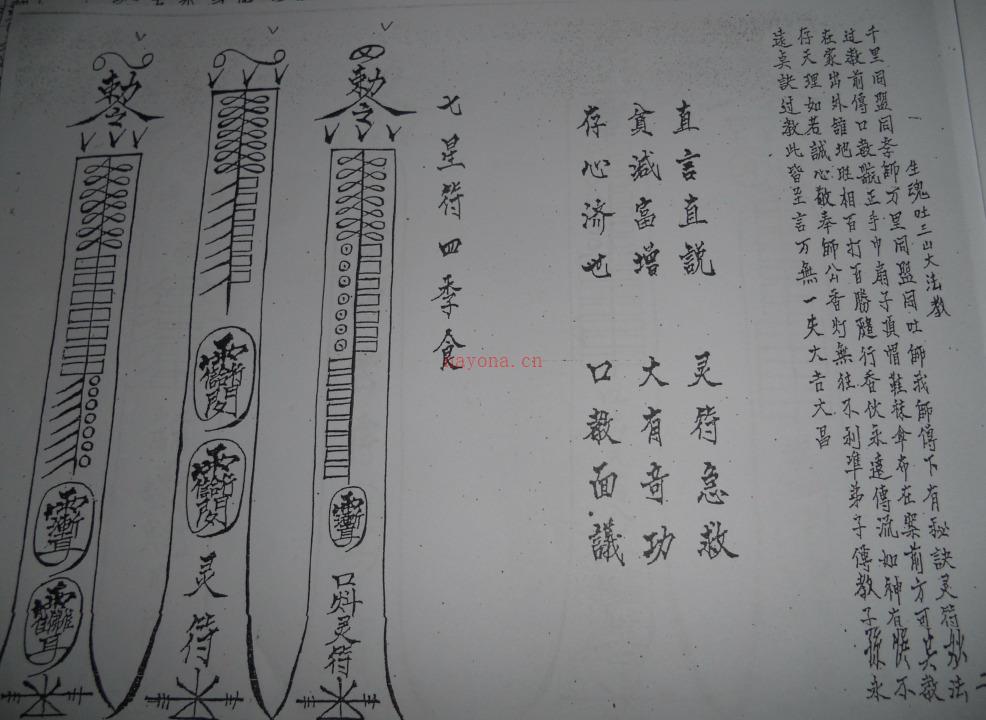 生魂吐三山大法教
千里同盟同李師万里同盟同吐師我師傳下有秘訣灵符妙法
过教前傳口教㱕正手巾扇子頂帽鞋袜伞布在案前方可具教
在家出外踏地胜相百打百勝隨行香伙永遠傳流如神有不
存天理如若誠心敬奉師公香灯無往不利準弟子傳教子孫永
遠貞訣过教此皆呈言万無一失大吉大昌
直言直説 灵符急救
貧减富增 大有奇功
存心济世 口教面議
七星符四季食
四
敕令
口灵符
灵符
敕令
nayona.cn